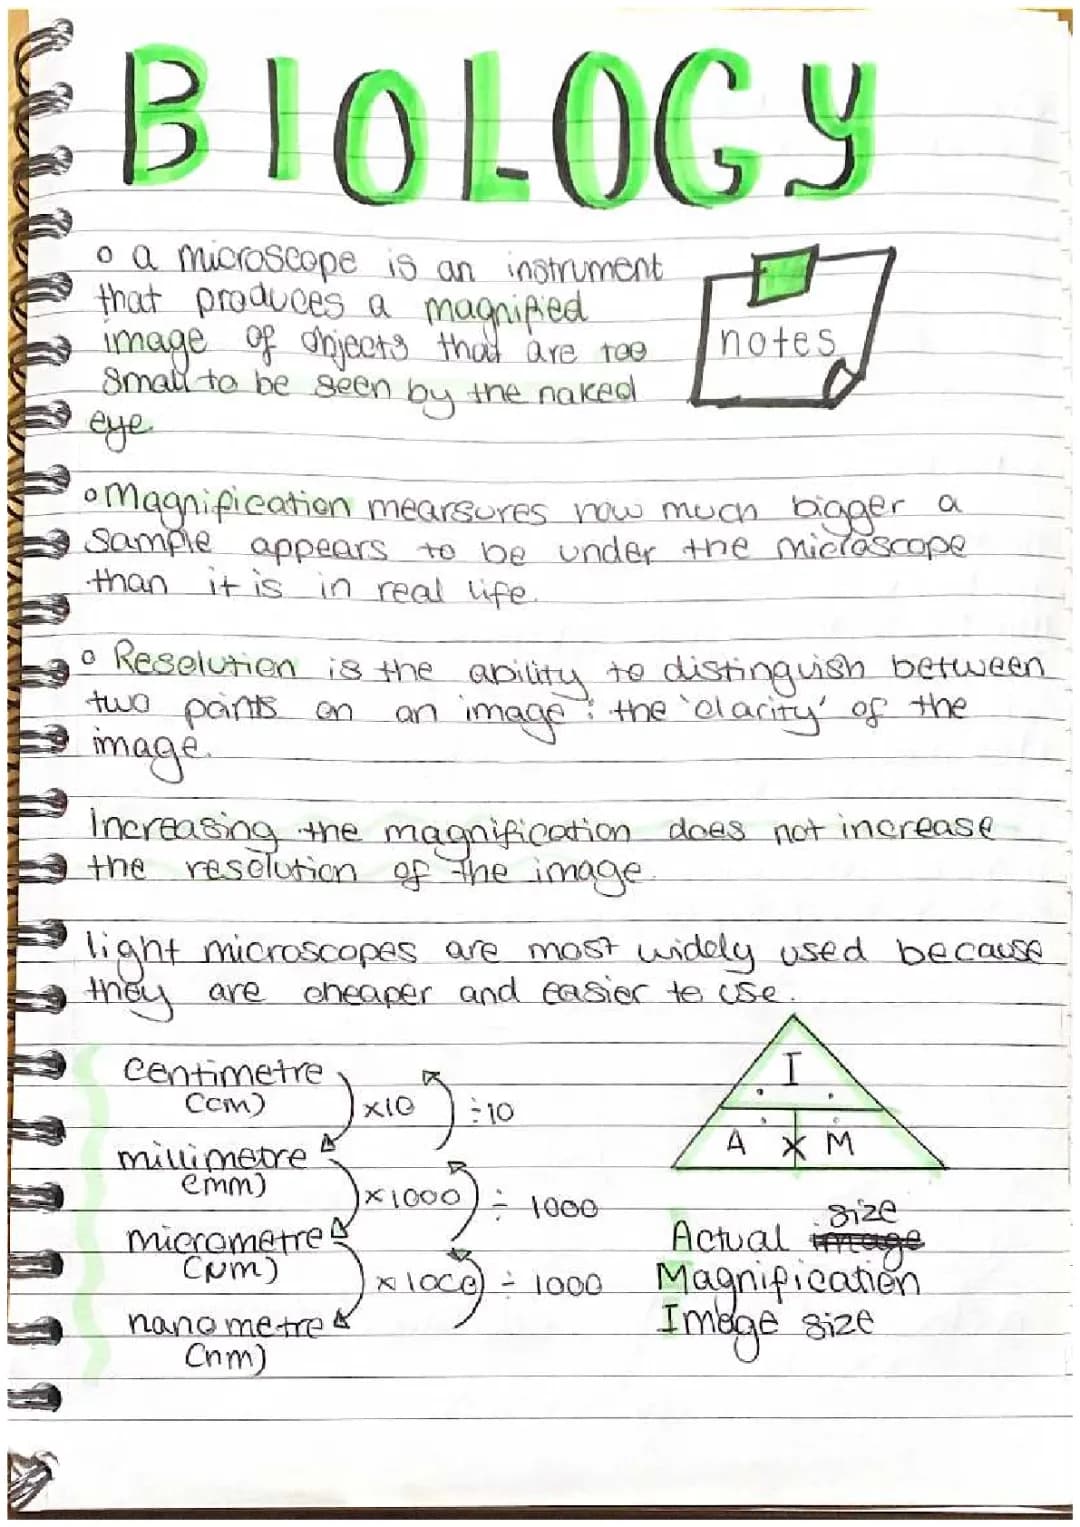 BIOLOGY
o a microscope is an instrument
that produces a magnified
image of objects that are too
small to be seen by the naked
eye.
notes
o Magnification mearsures how much bigger a
sample appears to be under the microscope
than it is in real life.
o Resolution is the ability to distinguish between
two points on an image : the 'clarity' of the
image.
Increasing the magnification does not increase
the resolution of the image.
light microscopes are most widely used because
they are cheaper and easier to use.
centimetre
(cm)
x10
÷10
millimetre
(mm)
x1000
÷ 1000
micrometre
(µm)
x1000
÷ 1000
nanometre
(nm)
I
A x M
Actual image size
Magnification
Image size